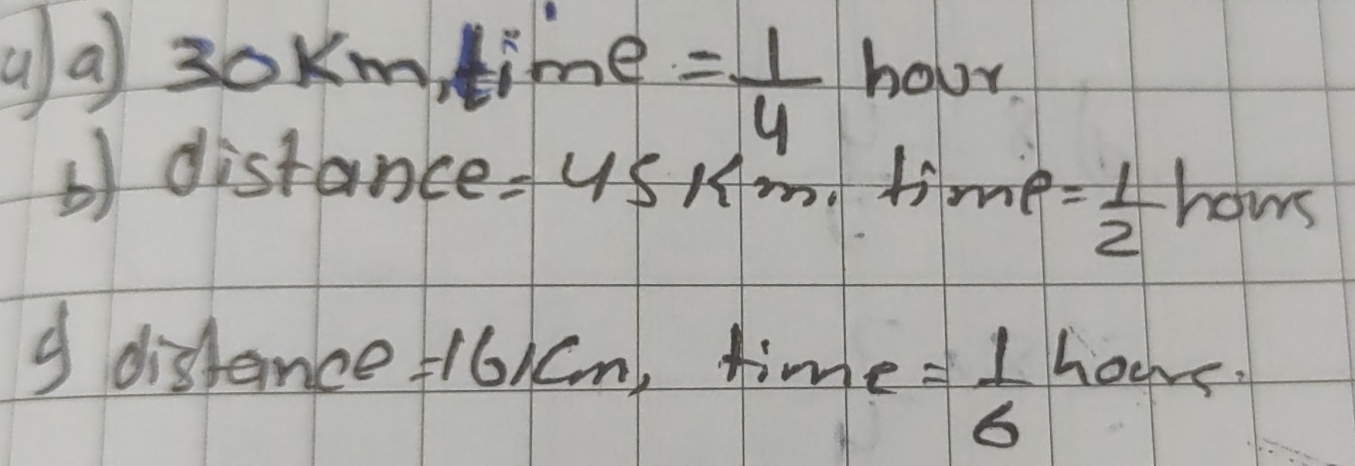 4) a) 30 Km, time = 1/4 hour.
b) distance = 45 Km. time = 1/2 hours
c) distance = 16 Km, time = 1/6 hours.